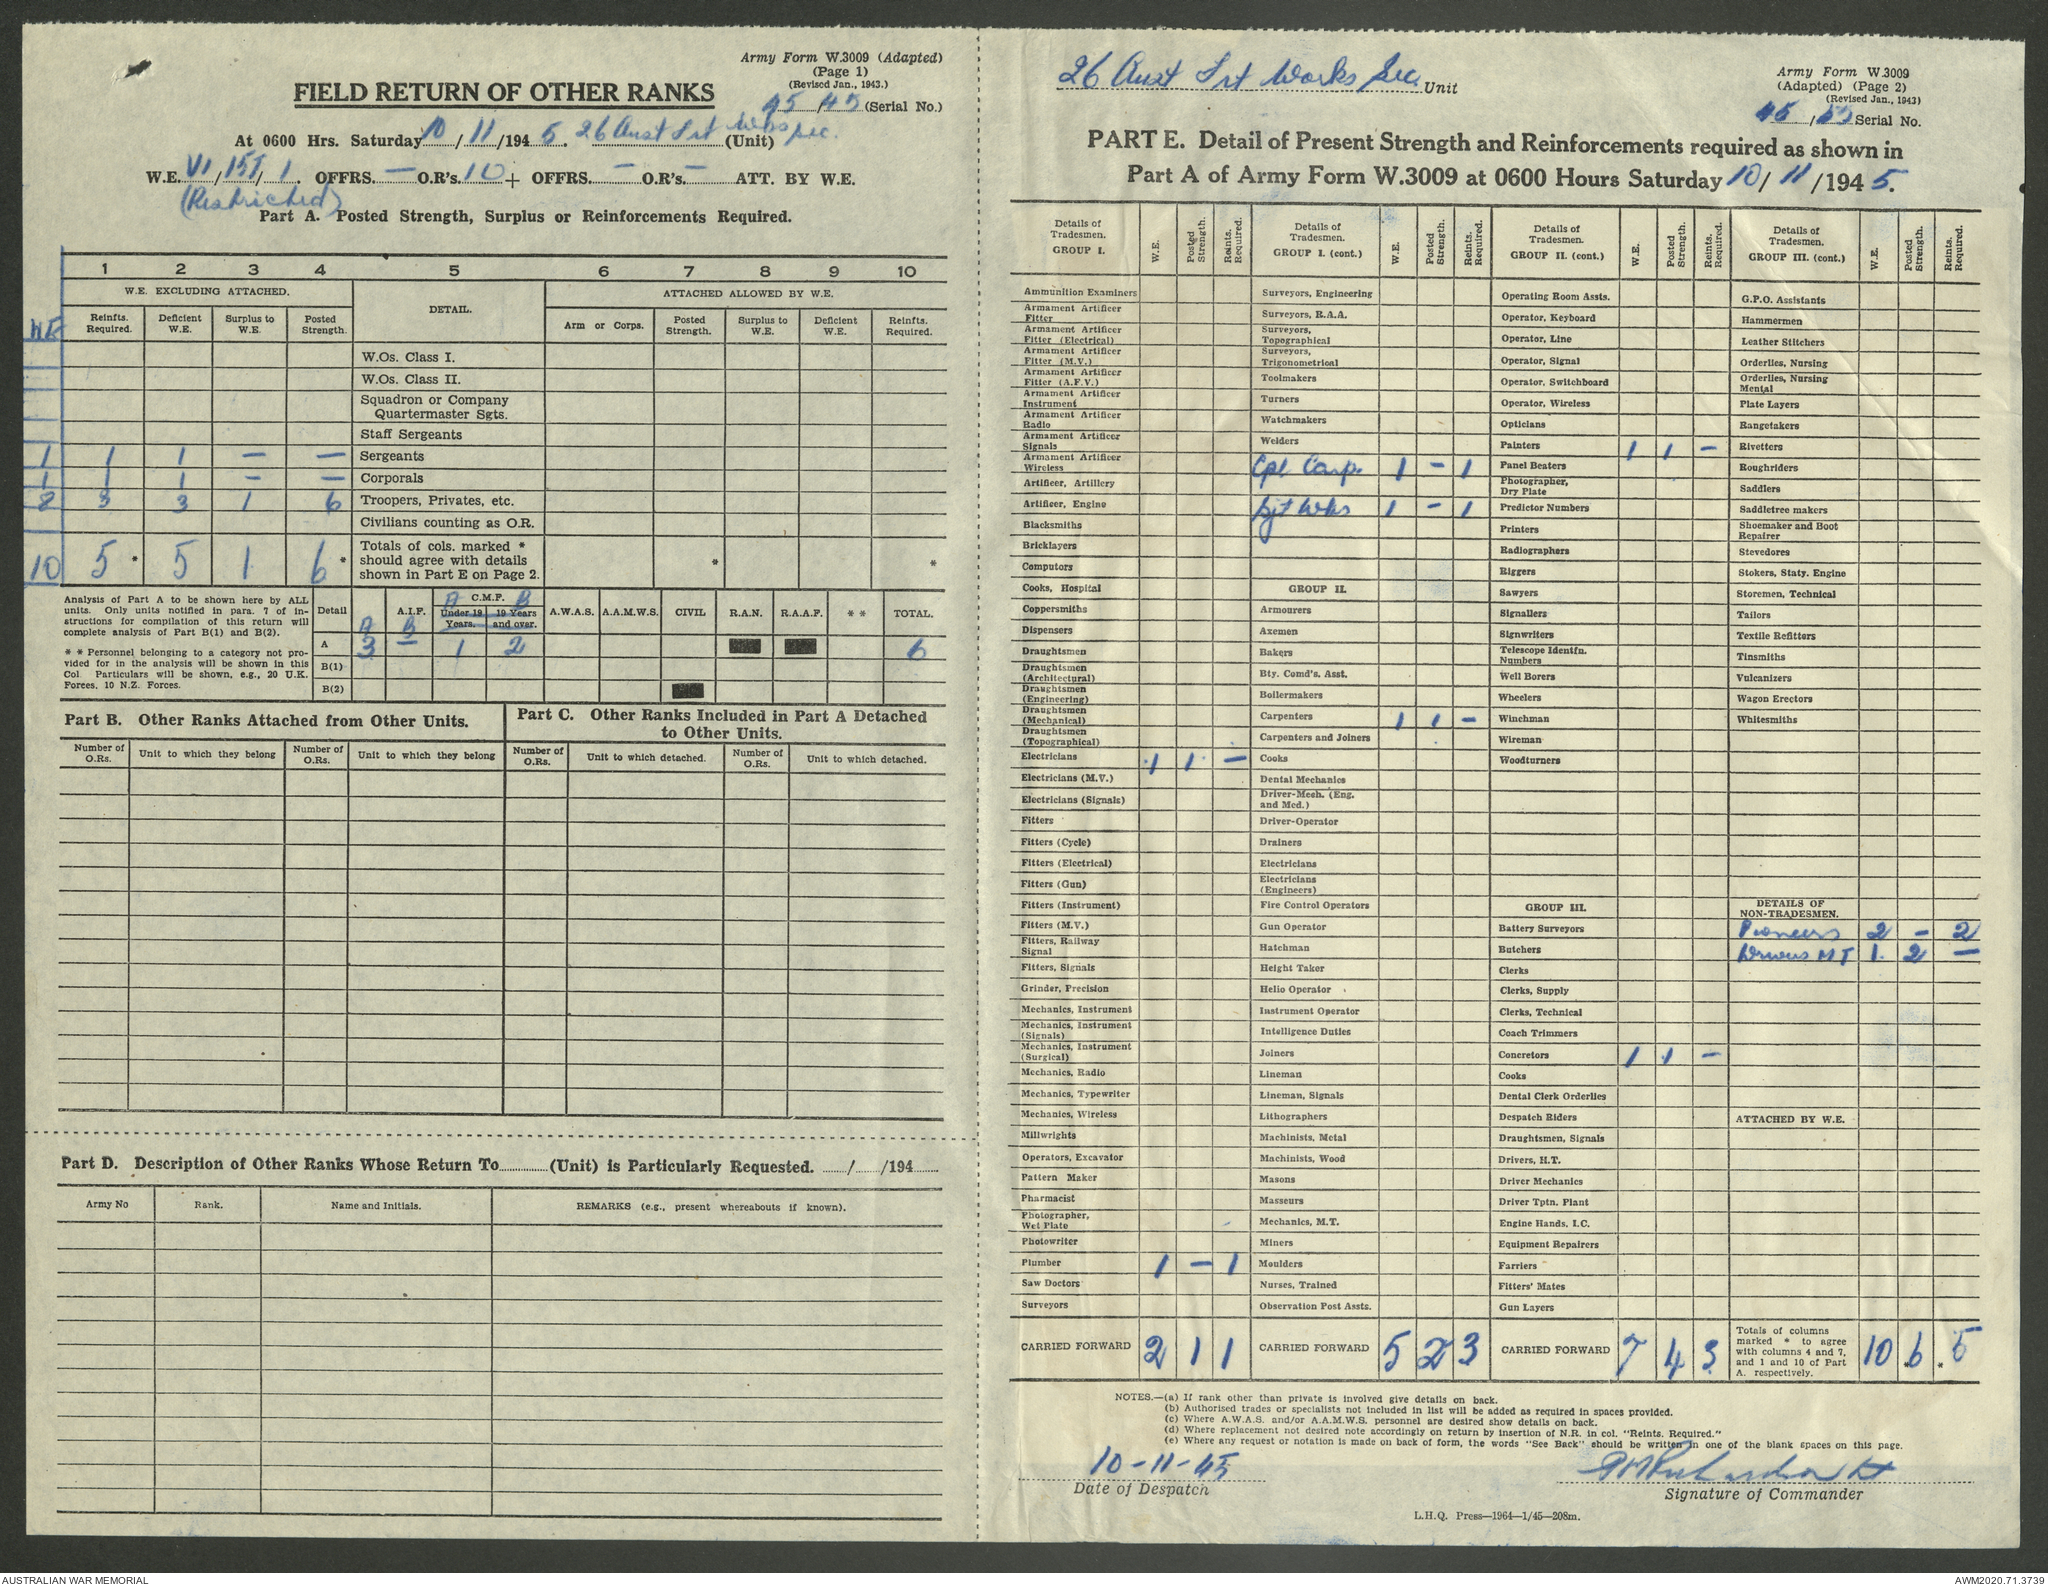 Army Form W.3009 (Adapted)
(Page 1)
(Revised Jan., 1943.)
FIELD RETURN OF OTHER RANKS
45/45 (Serial No.)
At 0600 Hrs. Saturday 10/11/1945. 26 Aust Frt Wks Sec. (Unit)
W.E. VI/15I/1. OFFRS. — O.R's. 10 + OFFRS. — O.R's. — ATT. BY W.E.
(Restricted)
Part A. Posted Strength, Surplus or Reinforcements Required.
1 2 3 4 5 6 7 8 9 10
W.E. EXCLUDING ATTACHED. DETAIL. ATTACHED ALLOWED BY W.E.
WE Reinfts. Required. Deficient W.E. Surplus to W.E. Posted Strength. Arm or Corps. Posted Strength. Surplus to W.E. Deficient W.E. Reinfts. Required.
W.Os. Class I.
W.Os. Class II.
Squadron or Company
Quartermaster Sgts.
Staff Sergeants
1 1 1 — — Sergeants
1 1 1 — — Corporals
8 3 3 1 6 Troopers, Privates, etc.
Civilians counting as O.R.
10 5 * 5 1 6 * Totals of cols. marked * should agree with details shown in Part E on Page 2. * *
Analysis of Part A to be shown here by ALL
units. Only units notified in para. 7 of in-
structions for compilation of this return will
complete analysis of Part B(1) and B(2).
* * Personnel belonging to a category not pro-
vided for in the analysis will be shown in this
Col. Particulars will be shown, e.g., 20 U.K.
Forces, 10 N.Z. Forces.
Detail A.I.F. C.M.F. Under 19 Years. 19 Years and over. A.W.A.S. A.A.M.W.S. CIVIL R.A.N. R.A.A.F. * * TOTAL.
A B A B
A 3 — 1 2 6
B(1)
B(2)
Part B. Other Ranks Attached from Other Units.
Number of O.Rs. Unit to which they belong Number of O.Rs. Unit to which they belong
Part C. Other Ranks Included in Part A Detached
to Other Units.
Number of O.Rs. Unit to which detached. Number of O.Rs. Unit to which detached.
Part D. Description of Other Ranks Whose Return To (Unit) is Particularly Requested. / /194
Army No Rank. Name and Initials. REMARKS (e.g., present whereabouts if known).
26 Aust Frt Works Sec. Unit
Army Form W.3009
(Adapted) (Page 2)
(Revised Jan., 1943)
45/ Serial No.
PART E. Detail of Present Strength and Reinforcements required as shown in
Part A of Army Form W.3009 at 0600 Hours Saturday 10/11/1945.
Details of Tradesmen. GROUP I. W.E. Posted Strength. Reints. Required.
Ammunition Examiners
Armament Artificer Fitter
Armament Artificer Fitter (Electrical)
Armament Artificer Fitter (M.V.)
Armament Artificer Fitter (A.F.V.)
Armament Artificer Instrument
Armament Artificer Radio
Armament Artificer Signals
Armament Artificer Wireless
Artificer, Artillery
Artificer, Engine
Blacksmiths
Bricklayers
Computors
Cooks, Hospital
Coppersmiths
Dispensers
Draughtsmen
Draughtsmen (Architectural)
Draughtsmen (Engineering)
Draughtsmen (Mechanical)
Draughtsmen (Topographical)
Electricians 1 1 —
Electricians (M.V.)
Electricians (Signals)
Fitters
Fitters (Cycle)
Fitters (Electrical)
Fitters (Gun)
Fitters (Instrument)
Fitters (M.V.)
Fitters, Railway Signal
Fitters, Signals
Grinder, Precision
Mechanics, Instrument
Mechanics, Instrument (Signals)
Mechanics, Instrument (Surgical)
Mechanics, Radio
Mechanics, Typewriter
Mechanics, Wireless
Millwrights
Operators, Excavator
Pattern Maker
Pharmacist
Photographer, Wet Plate
Photowriter
Plumber 1 — 1
Saw Doctors
Surveyors
CARRIED FORWARD 2 1 1
Details of Tradesmen. GROUP I. (cont.) W.E. Posted Strength. Reints. Required.
Surveyors, Engineering
Surveyors, R.A.A.
Surveyors, Topographical
Surveyors, Trigonometrical
Toolmakers
Turners
Watchmakers
Welders
Cpl Carp. 1 — 1
Sjt Wks 1 — 1
GROUP II.
Armourers
Axemen
Bakers
Bty. Comd's. Asst.
Boilermakers
Carpenters 1 1 —
Carpenters and Joiners
Cooks
Dental Mechanics
Driver-Mech. (Eng. and Med.)
Driver-Operator
Drainers
Electricians
Electricians (Engineers)
Fire Control Operators
Gun Operator
Hatchman
Height Taker
Helio Operator
Instrument Operator
Intelligence Duties
Joiners
Lineman
Lineman, Signals
Lithographers
Machinists, Metal
Machinists, Wood
Masons
Masseurs
Mechanics, M.T.
Miners
Moulders
Nurses, Trained
Observation Post Assts.
CARRIED FORWARD 5 2 3
Details of Tradesmen. GROUP II. (cont.) W.E. Posted Strength. Reints. Required.
Operating Room Assts.
Operator, Keyboard
Operator, Line
Operator, Signal
Operator, Switchboard
Operator, Wireless
Opticians
Painters 1 1 —
Panel Beaters
Photographer, Dry Plate
Predictor Numbers
Printers
Radiographers
Riggers
Sawyers
Signallers
Signwriters
Telescope Identfn. Numbers
Well Borers
Wheelers
Winchman
Wireman
Woodturners
GROUP III.
Battery Surveyors
Butchers
Clerks
Clerks, Supply
Clerks, Technical
Coach Trimmers
Concretors 1 1 —
Cooks
Dental Clerk Orderlies
Despatch Riders
Draughtsmen, Signals
Drivers, H.T.
Driver Mechanics
Driver Tptn. Plant
Engine Hands, I.C.
Equipment Repairers
Farriers
Fitters' Mates
Gun Layers
CARRIED FORWARD 7 4 3
Details of Tradesmen. GROUP III. (cont.) W.E. Posted Strength. Reints. Required.
G.P.O. Assistants
Hammermen
Leather Stitchers
Orderlies, Nursing
Orderlies, Nursing Mental
Plate Layers
Rangetakers
Rivetters
Roughriders
Saddlers
Saddletree makers
Shoemaker and Boot Repairer
Stevedores
Stokers, Staty. Engine
Storemen, Technical
Tailors
Textile Refitters
Tinsmiths
Vulcanizers
Wagon Erectors
Whitesmiths
DETAILS OF NON-TRADESMEN.
Pioneers 2 — 2
Drivers MT 1 2 —
ATTACHED BY W.E.
Totals of columns marked * to agree with columns 4 and 7, and 1 and 10 of Part A. respectively. 10 * 6 * 5
NOTES.—(a) If rank other than private is involved give details on back.
(b) Authorised trades or specialists not included in list will be added as required in spaces provided.
(c) Where A.W.A.S. and/or A.A.M.W.S. personnel are desired show details on back.
(d) Where replacement not desired note accordingly on return by insertion of N.R. in col. "Reints. Required."
(e) Where any request or notation is made on back of form, the words "See Back" should be written in one of the blank spaces on this page.
10-11-45
Date of Despatch
Richardson Lt
Signature of Commander
L.H.Q. Press—1964—1/45—208m.
AUSTRALIAN WAR MEMORIAL
AWM2020.71.3739